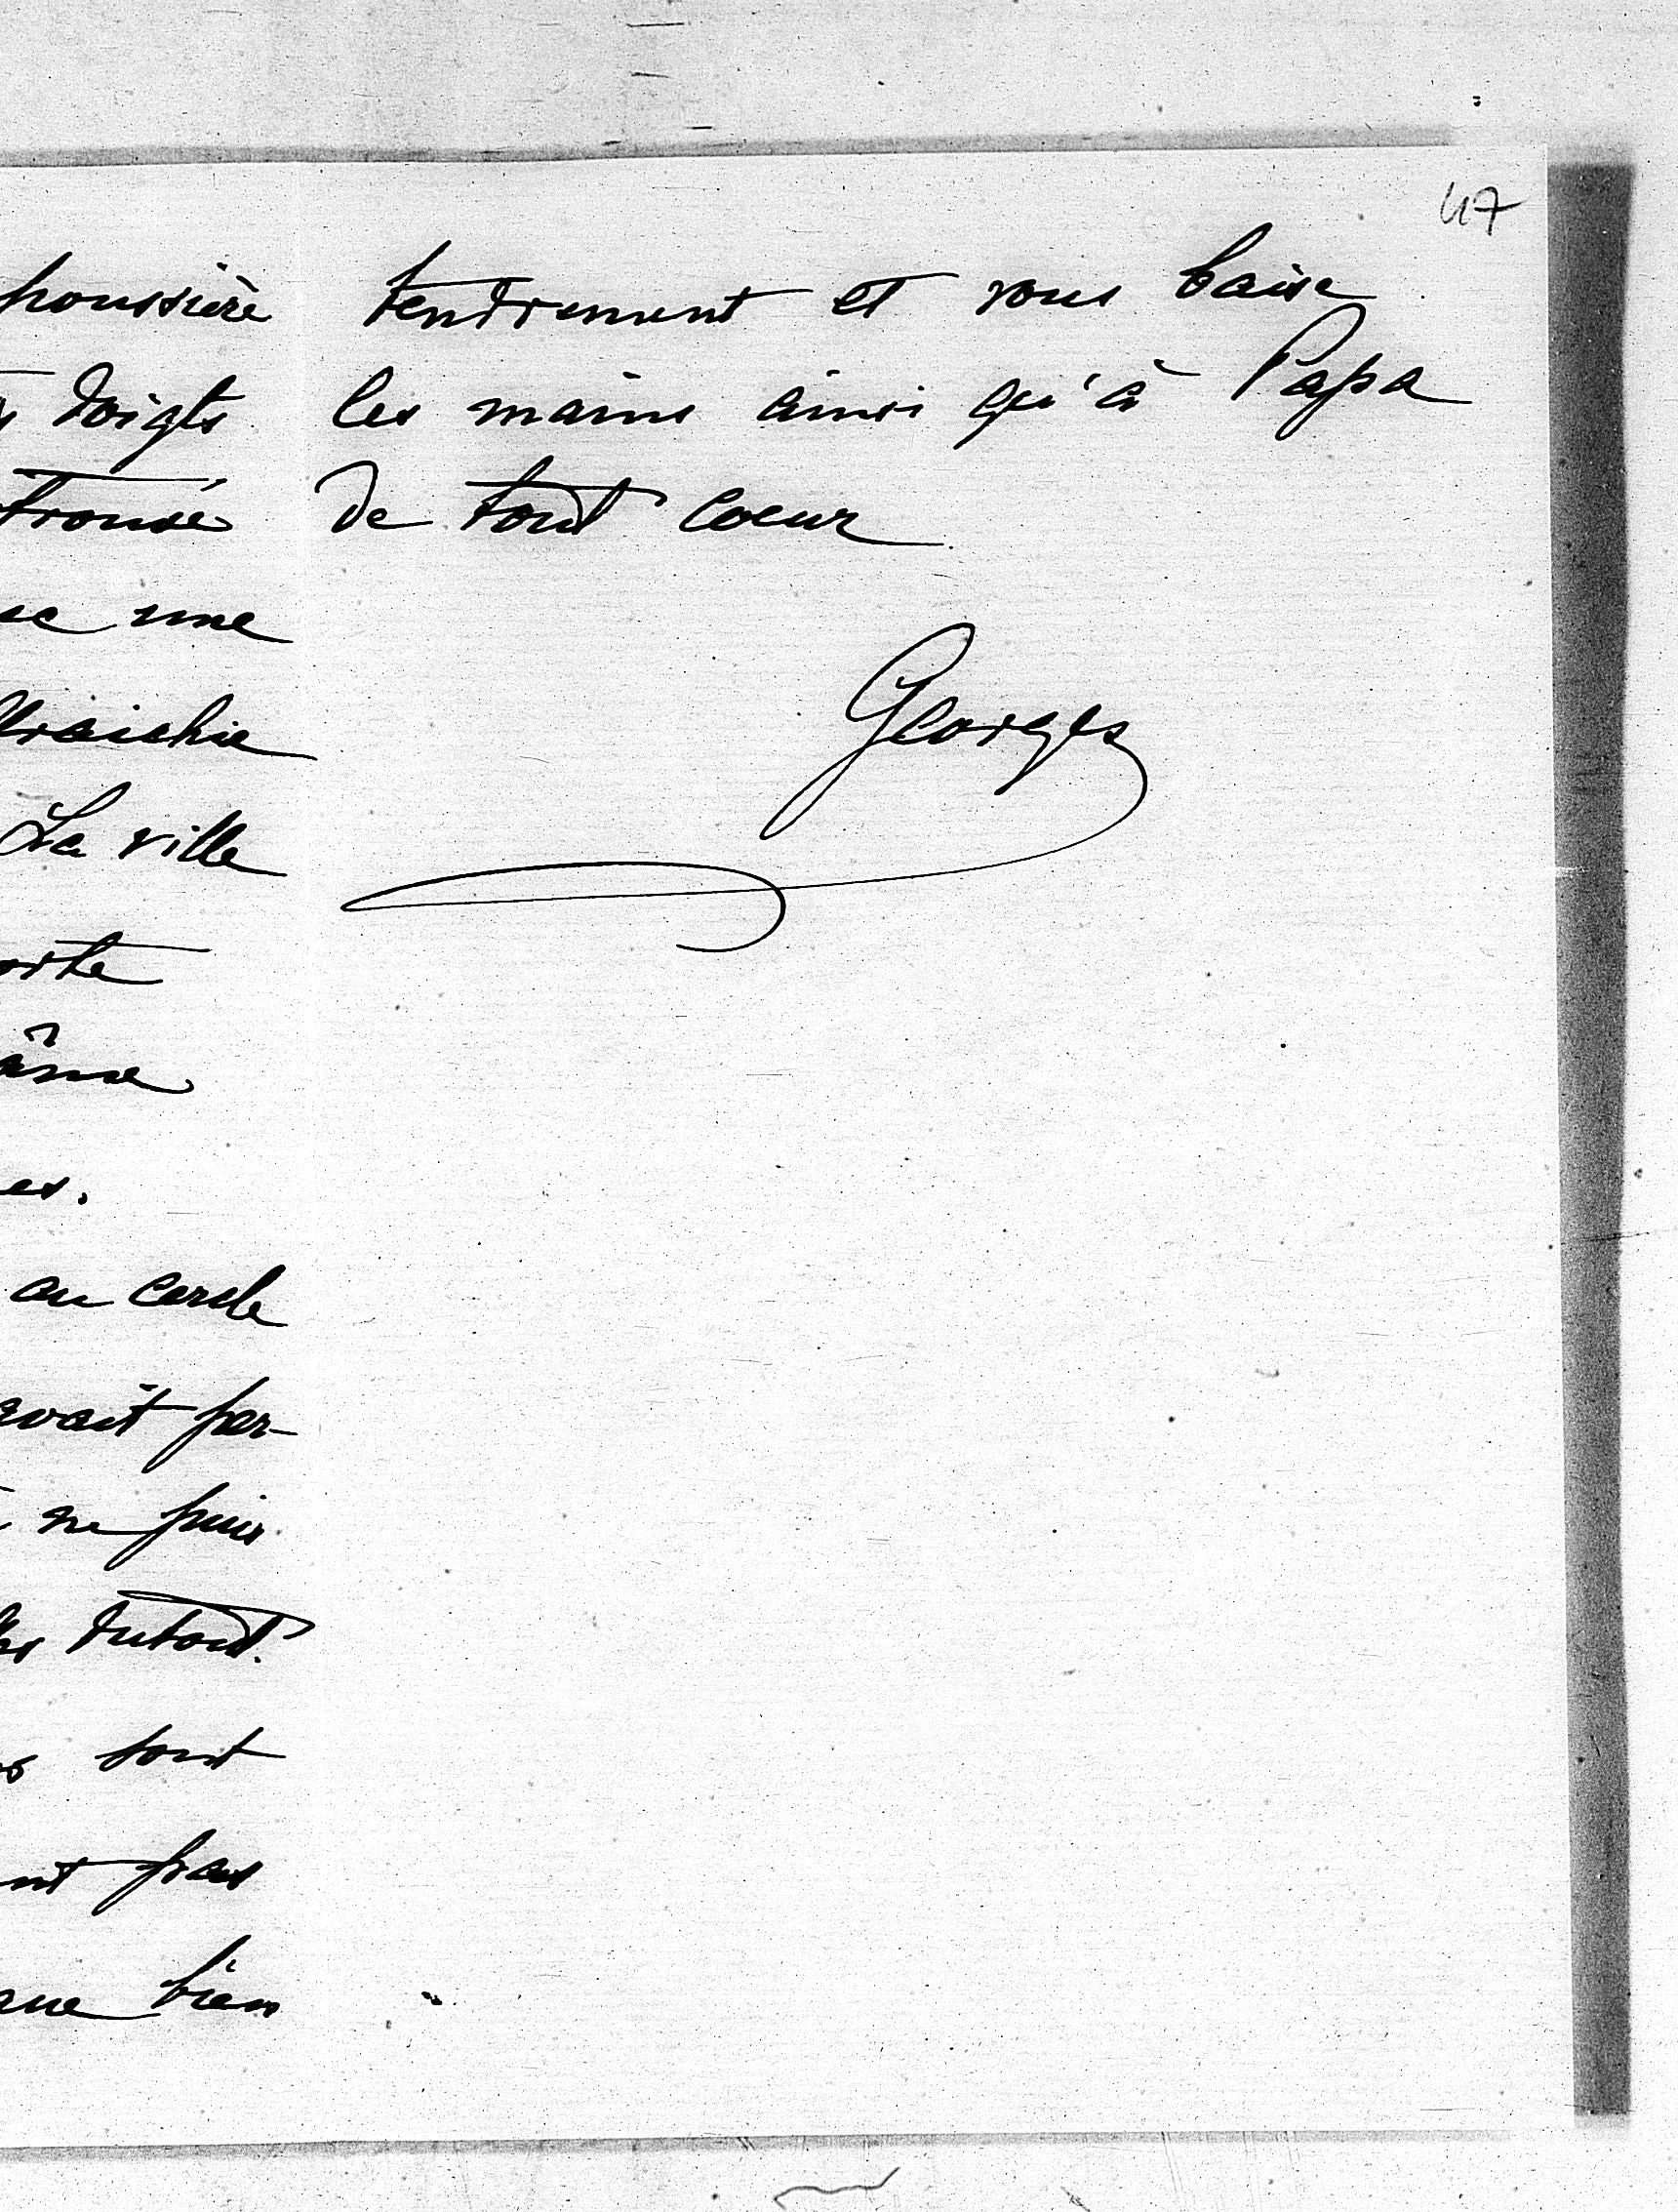 47
poussière
doigts
trouvé
une
fraichie
La ville
orte
âme
es.
au cercle
avait per-
ne puis
dutout.
tout
nt pas
que bien
tendrement et vous baise
les mains ainsi qu'à Papa
de tout coeur
Georges